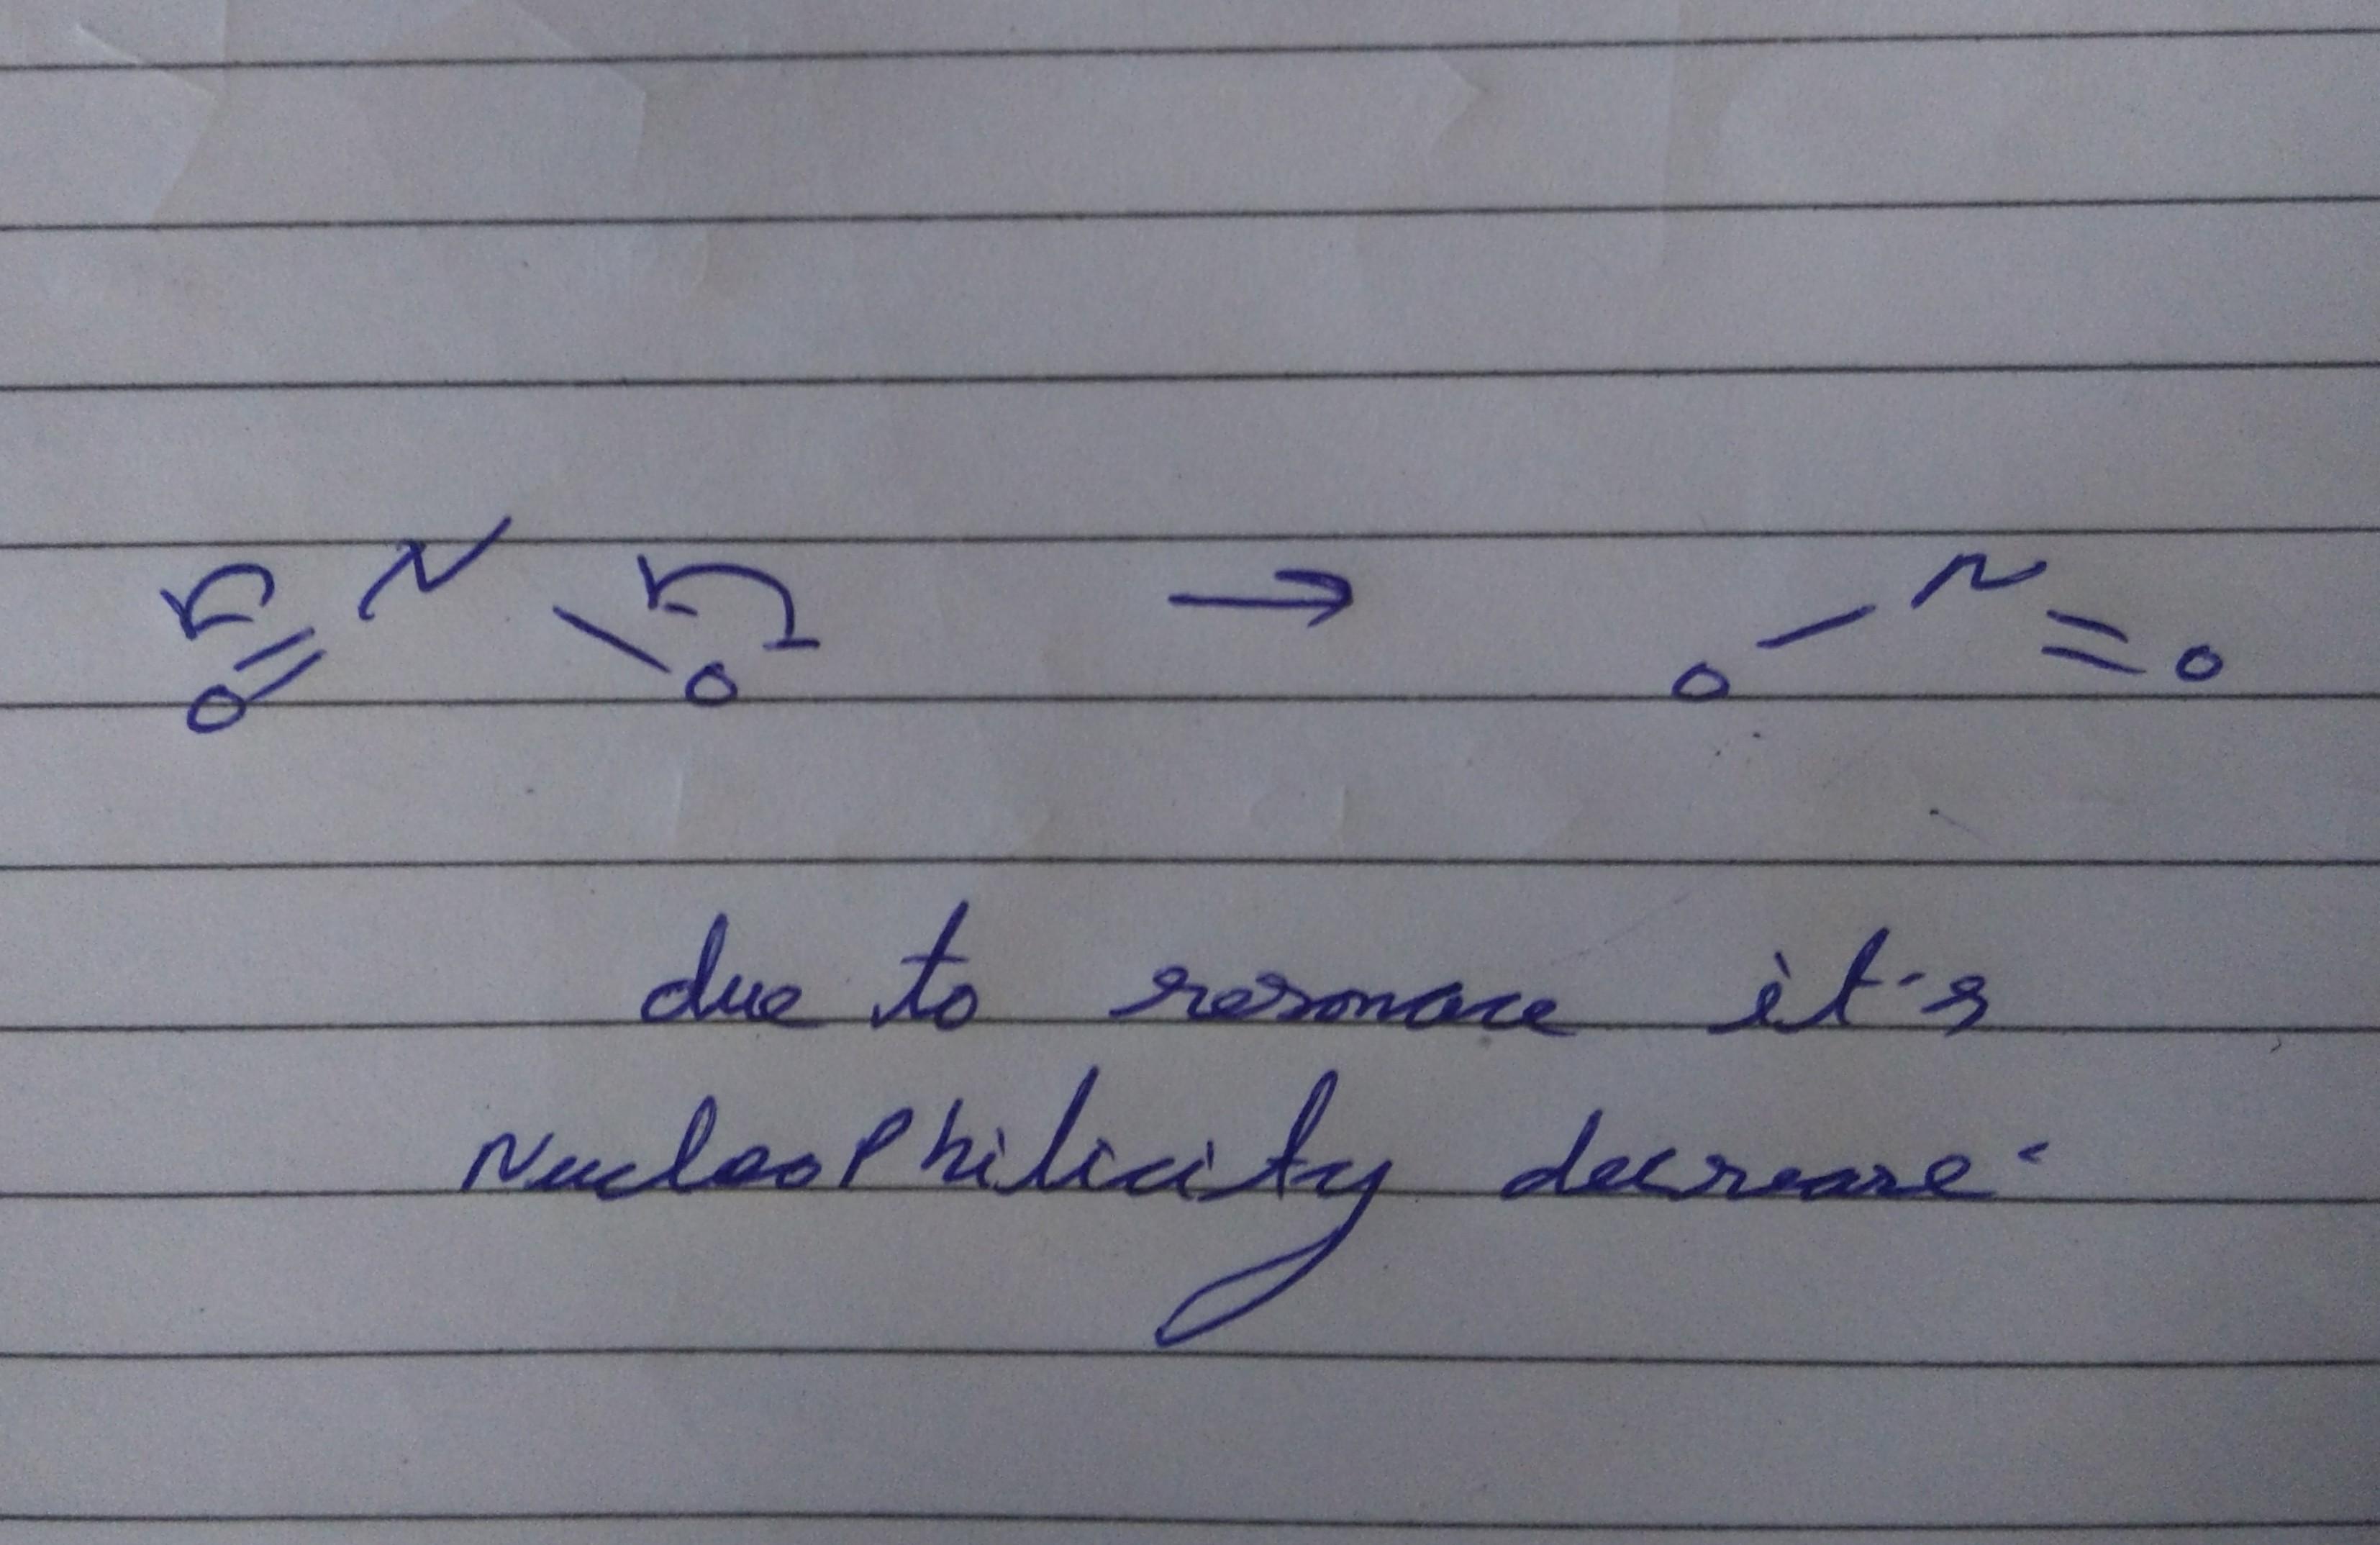 O=N-O⁻ → O-N=O
due to resonace it's
NucleoPhilicity decrease.